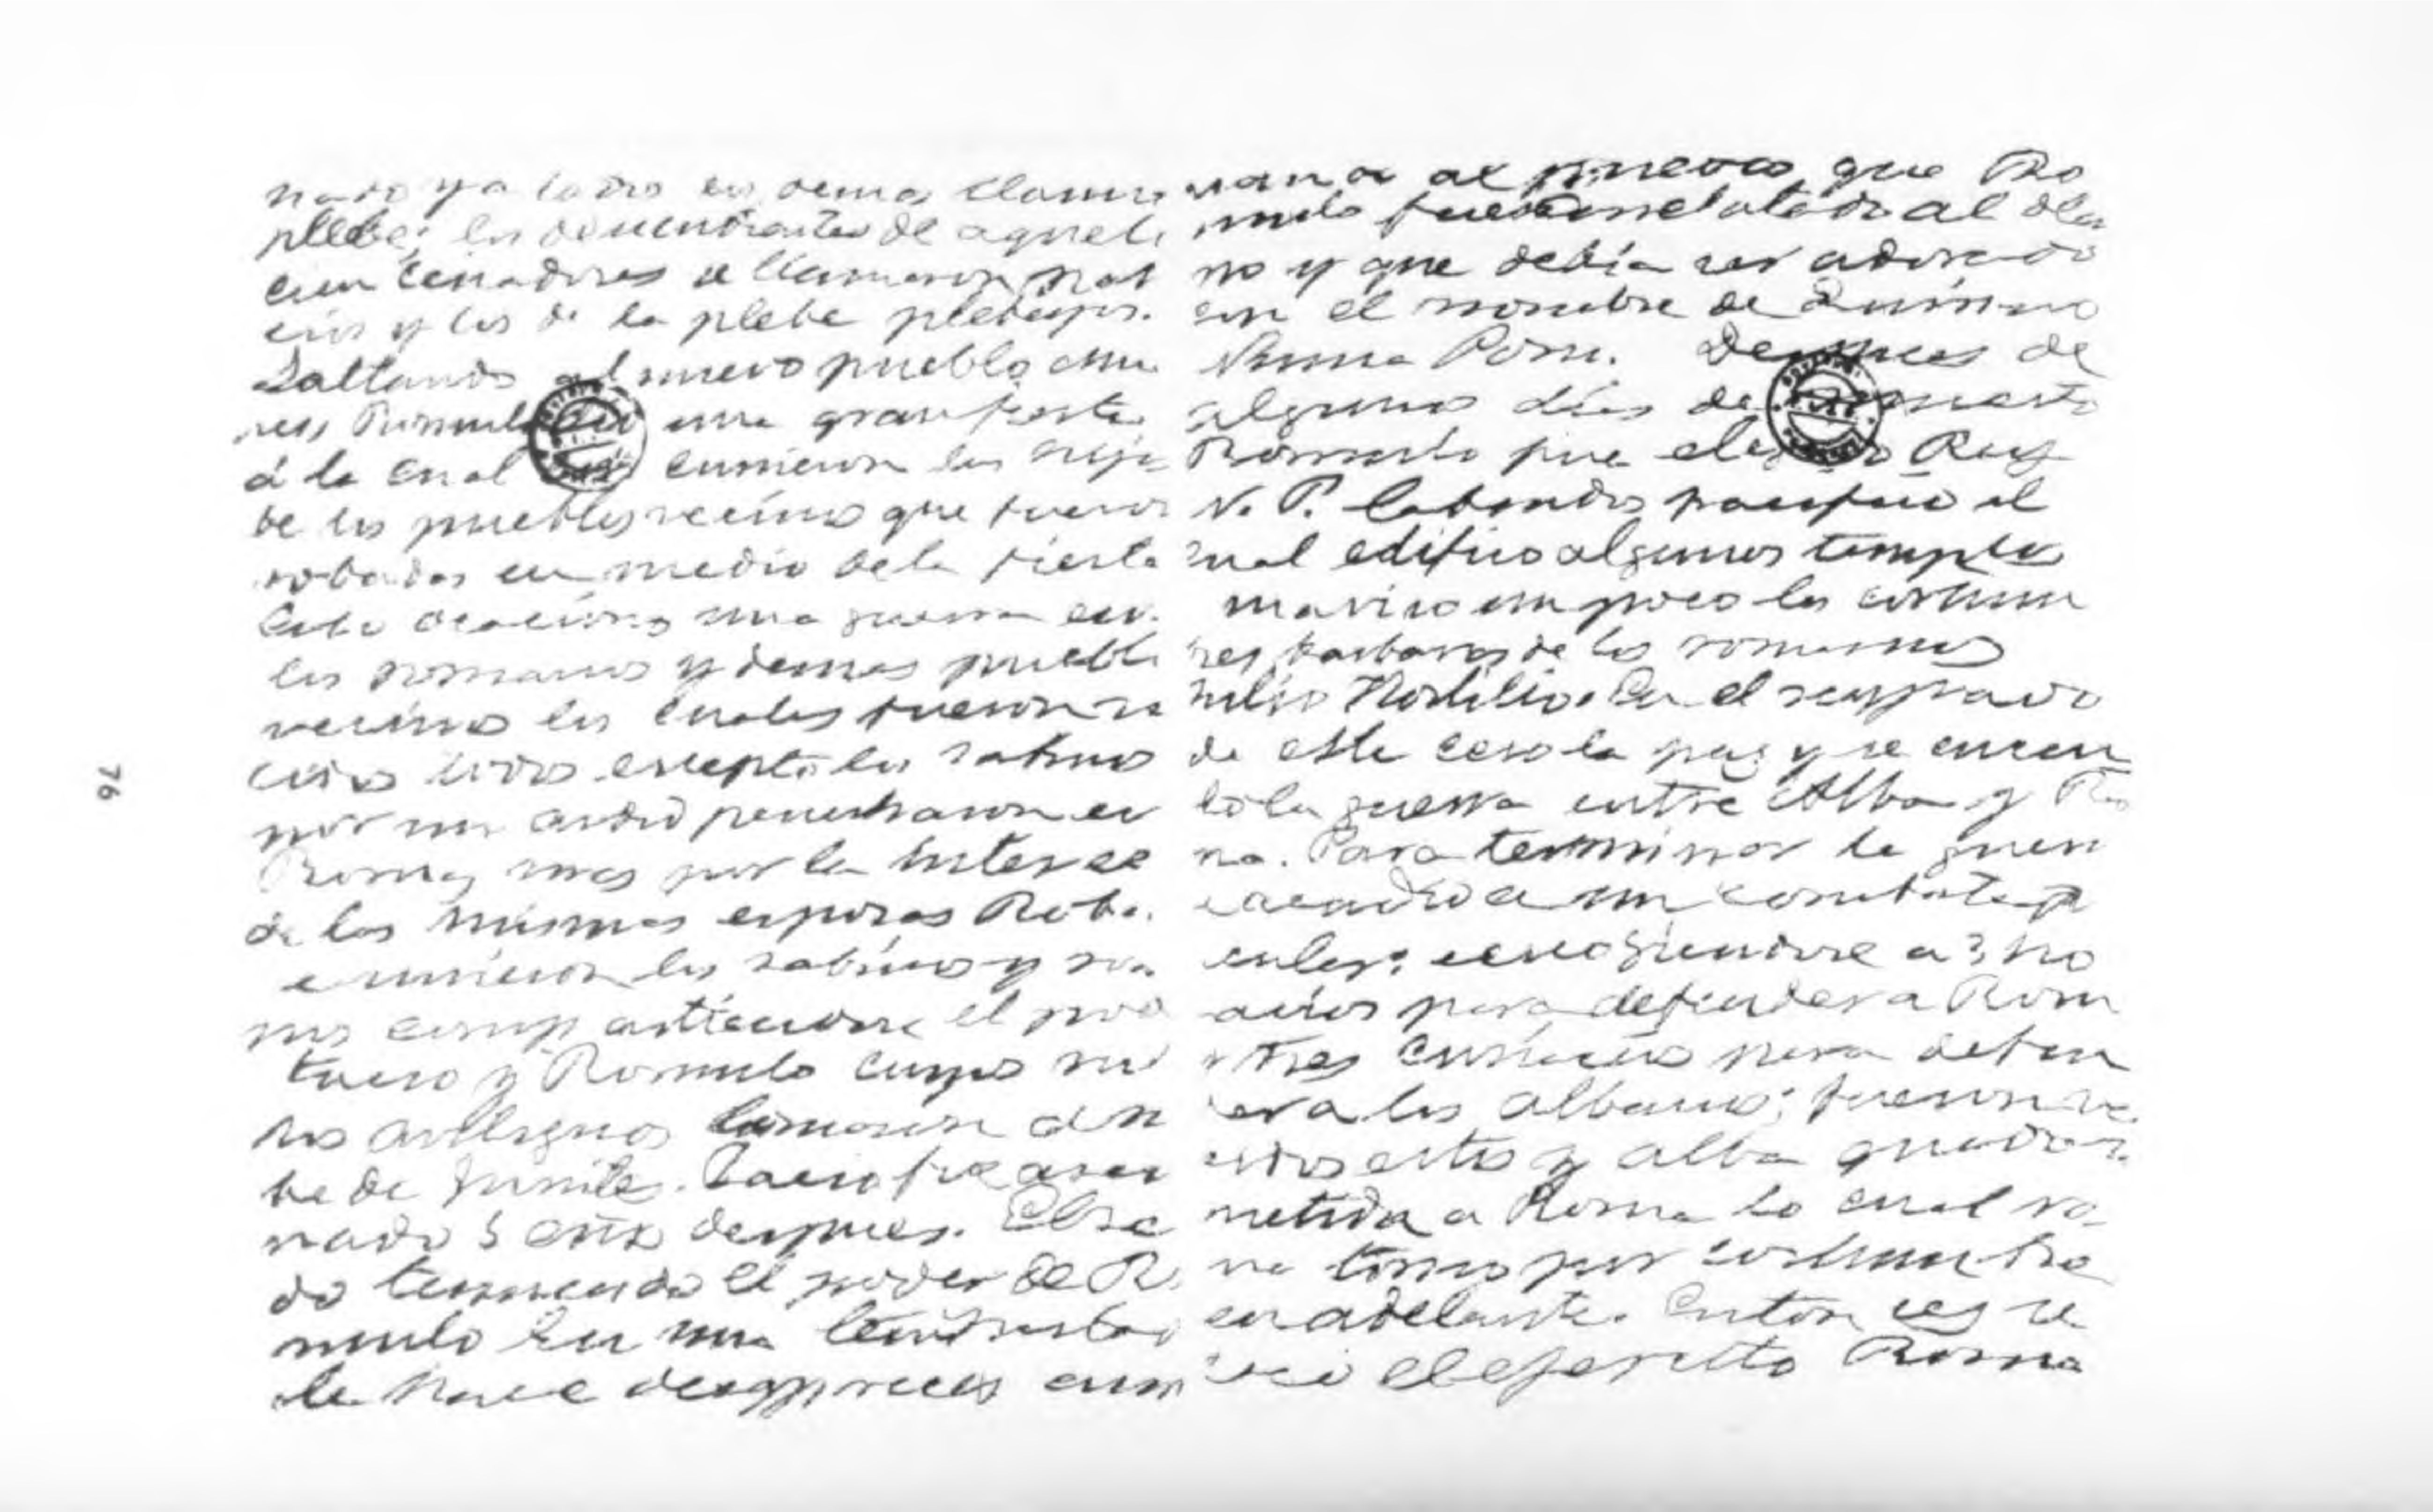 nado y a todos los demas llamo
plebe; los descendientes de aquel
cien senadores se llamaron pat
cios y los de la plebe plebeyos.
Faltando al nuevo pueblo mu
res Romulo dio una gran fiesta
á la cual concurrieron las hijas
de los pueblos vecinos que fueron
robadas en medio de la fiesta
Esto ocasiono una guerra en
los romanos y demas puebl
vecinos los cuales fueron ve
cidos todos escepto los sabinos
por un ardid penetraron en
Roma, mas por la interce
de las mismas esposas Roba.
e unieron los sabinos y ro
nos compartiendose el pod
Tacio y Romulo cuyos su
tos tomaron el n
bre de Quirites. Tacio fue asesi
nado 5 años despues. El se
do temiendo el poder de R
mulo en una
le hace desaparecer
al pueblo que Ro
mulo fue arrebatado al
no y que debía ser adorado
con el nombre de Quirino
Numa Pom. Despues de
algunos días de muerto
Romulo fue elegido Rey
N. P. pacifico el
cual edifico algunos templos
suaviso un poco las costum
res barbaras de los romanos
Tulio Hostilio. En el reynado
de este ceso la paz y se encen
dio la guerra entre Alba y Ro
ma. Para terminar la guerr
acudio a un combate p
cular; escogiendose a 3 ho
acios para defender a Rom
y tres Curiacios para defen
er a los albanos; fueron ve
cidos estos y alba quedo
metida a Roma lo cual ro
ma tomo por costumbre
en adelante. Entonces se
el ejercito Roma
76